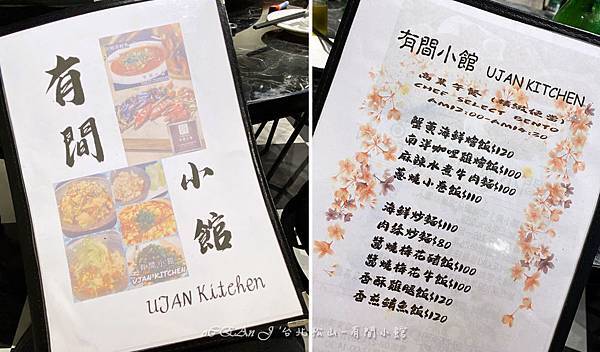 有間
小館
UJAN Kitchen
有間小館
UJAN KITCHEN
有間小館 UJAN KITCHEN
商業午餐
CHEF SELECT BENTO
AM12:00-AM14:30
蟹黃海鮮燴飯$120
南洋咖哩雞燴飯$100
麻辣水煮牛肉麵$100
蔥燒小卷飯$110
海鮮炒麵$110
肉絲炒麵$80
醬燒梅花豬飯$100
醬燒梅花牛飯$100
香酥雞腿飯$120
香煎鯖魚飯$120
台北松山-有間小館